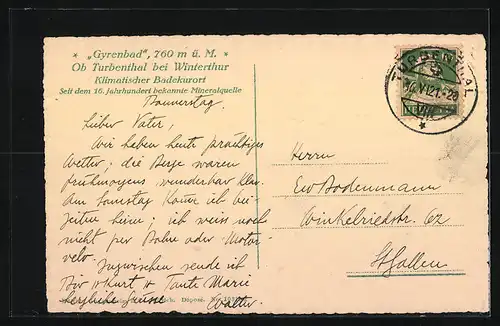 * „Gyrenbad", 760 m ü. M. *
Ob Turbenthal bei Winterthur
Klimatischer Badekurort
Seit dem 16. Jahrhundert bekannte Mineralquelle
Donnerstag.
Lieber Vater,
Wir haben heute prächtiges
Wetter, die Berge waren
frühmorgens wunderbar klar.
Am Sonntag komme ich bei-
zeiten heim; ich weiss noch
nicht per Bahn oder Motor-
velo. Inzwischen sende ich
Dir, Kurt & Tante Marie
herzliche Grüsse Walter.
Herrn
Ew Bodenmann
Winkelriedstr. 62
St Gallen
TURBENTHAL
HELVETIA